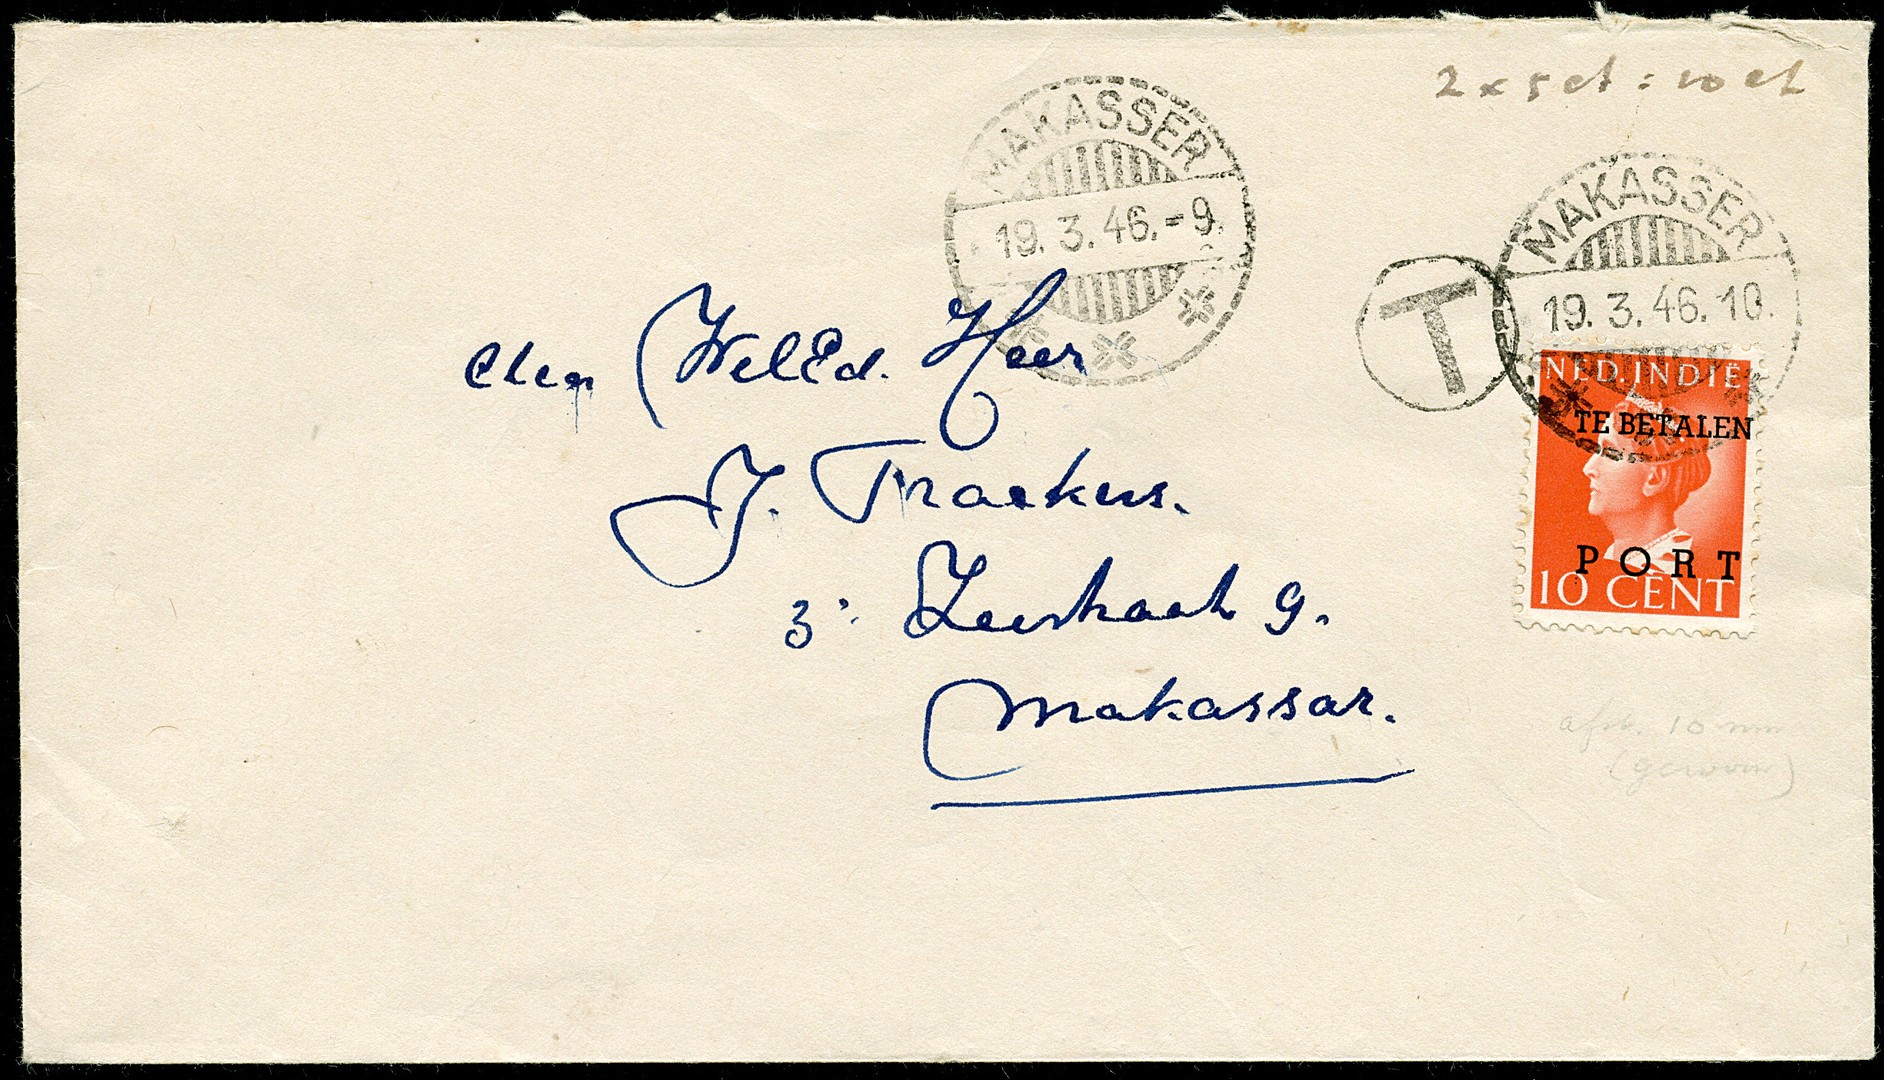 2 x 5 ct : 10 ct
MAKASSER
19. 3. 46. - 9.
MAKASSER
19. 3. 46. 10.
T
NED. INDIË
TE BETALEN
PORT
10 CENT
den WelEd. Heer
J. Fraekers.
3: 9.
Makassar.
afst. 10 mm